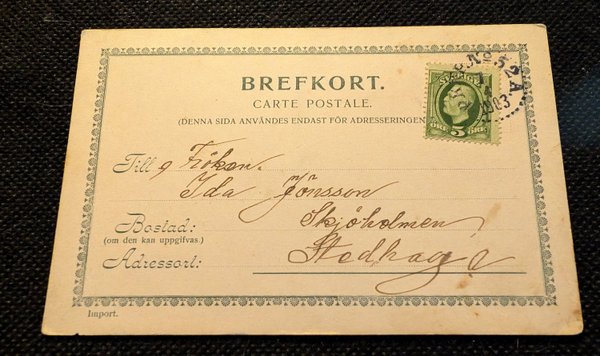 BREFKORT.
CARTE POSTALE.
(DENNA SIDA ANVÄNDES ENDAST FÖR ADRESSERINGEN
SVERIGE
ÖRE 5 ÖRE
No 52 A
1903
Till Fröken
Ida Jönsson
Skjöholmen
Bostad:
(om den kan uppgifvas.)
Stedhag
Adressort:
Import.